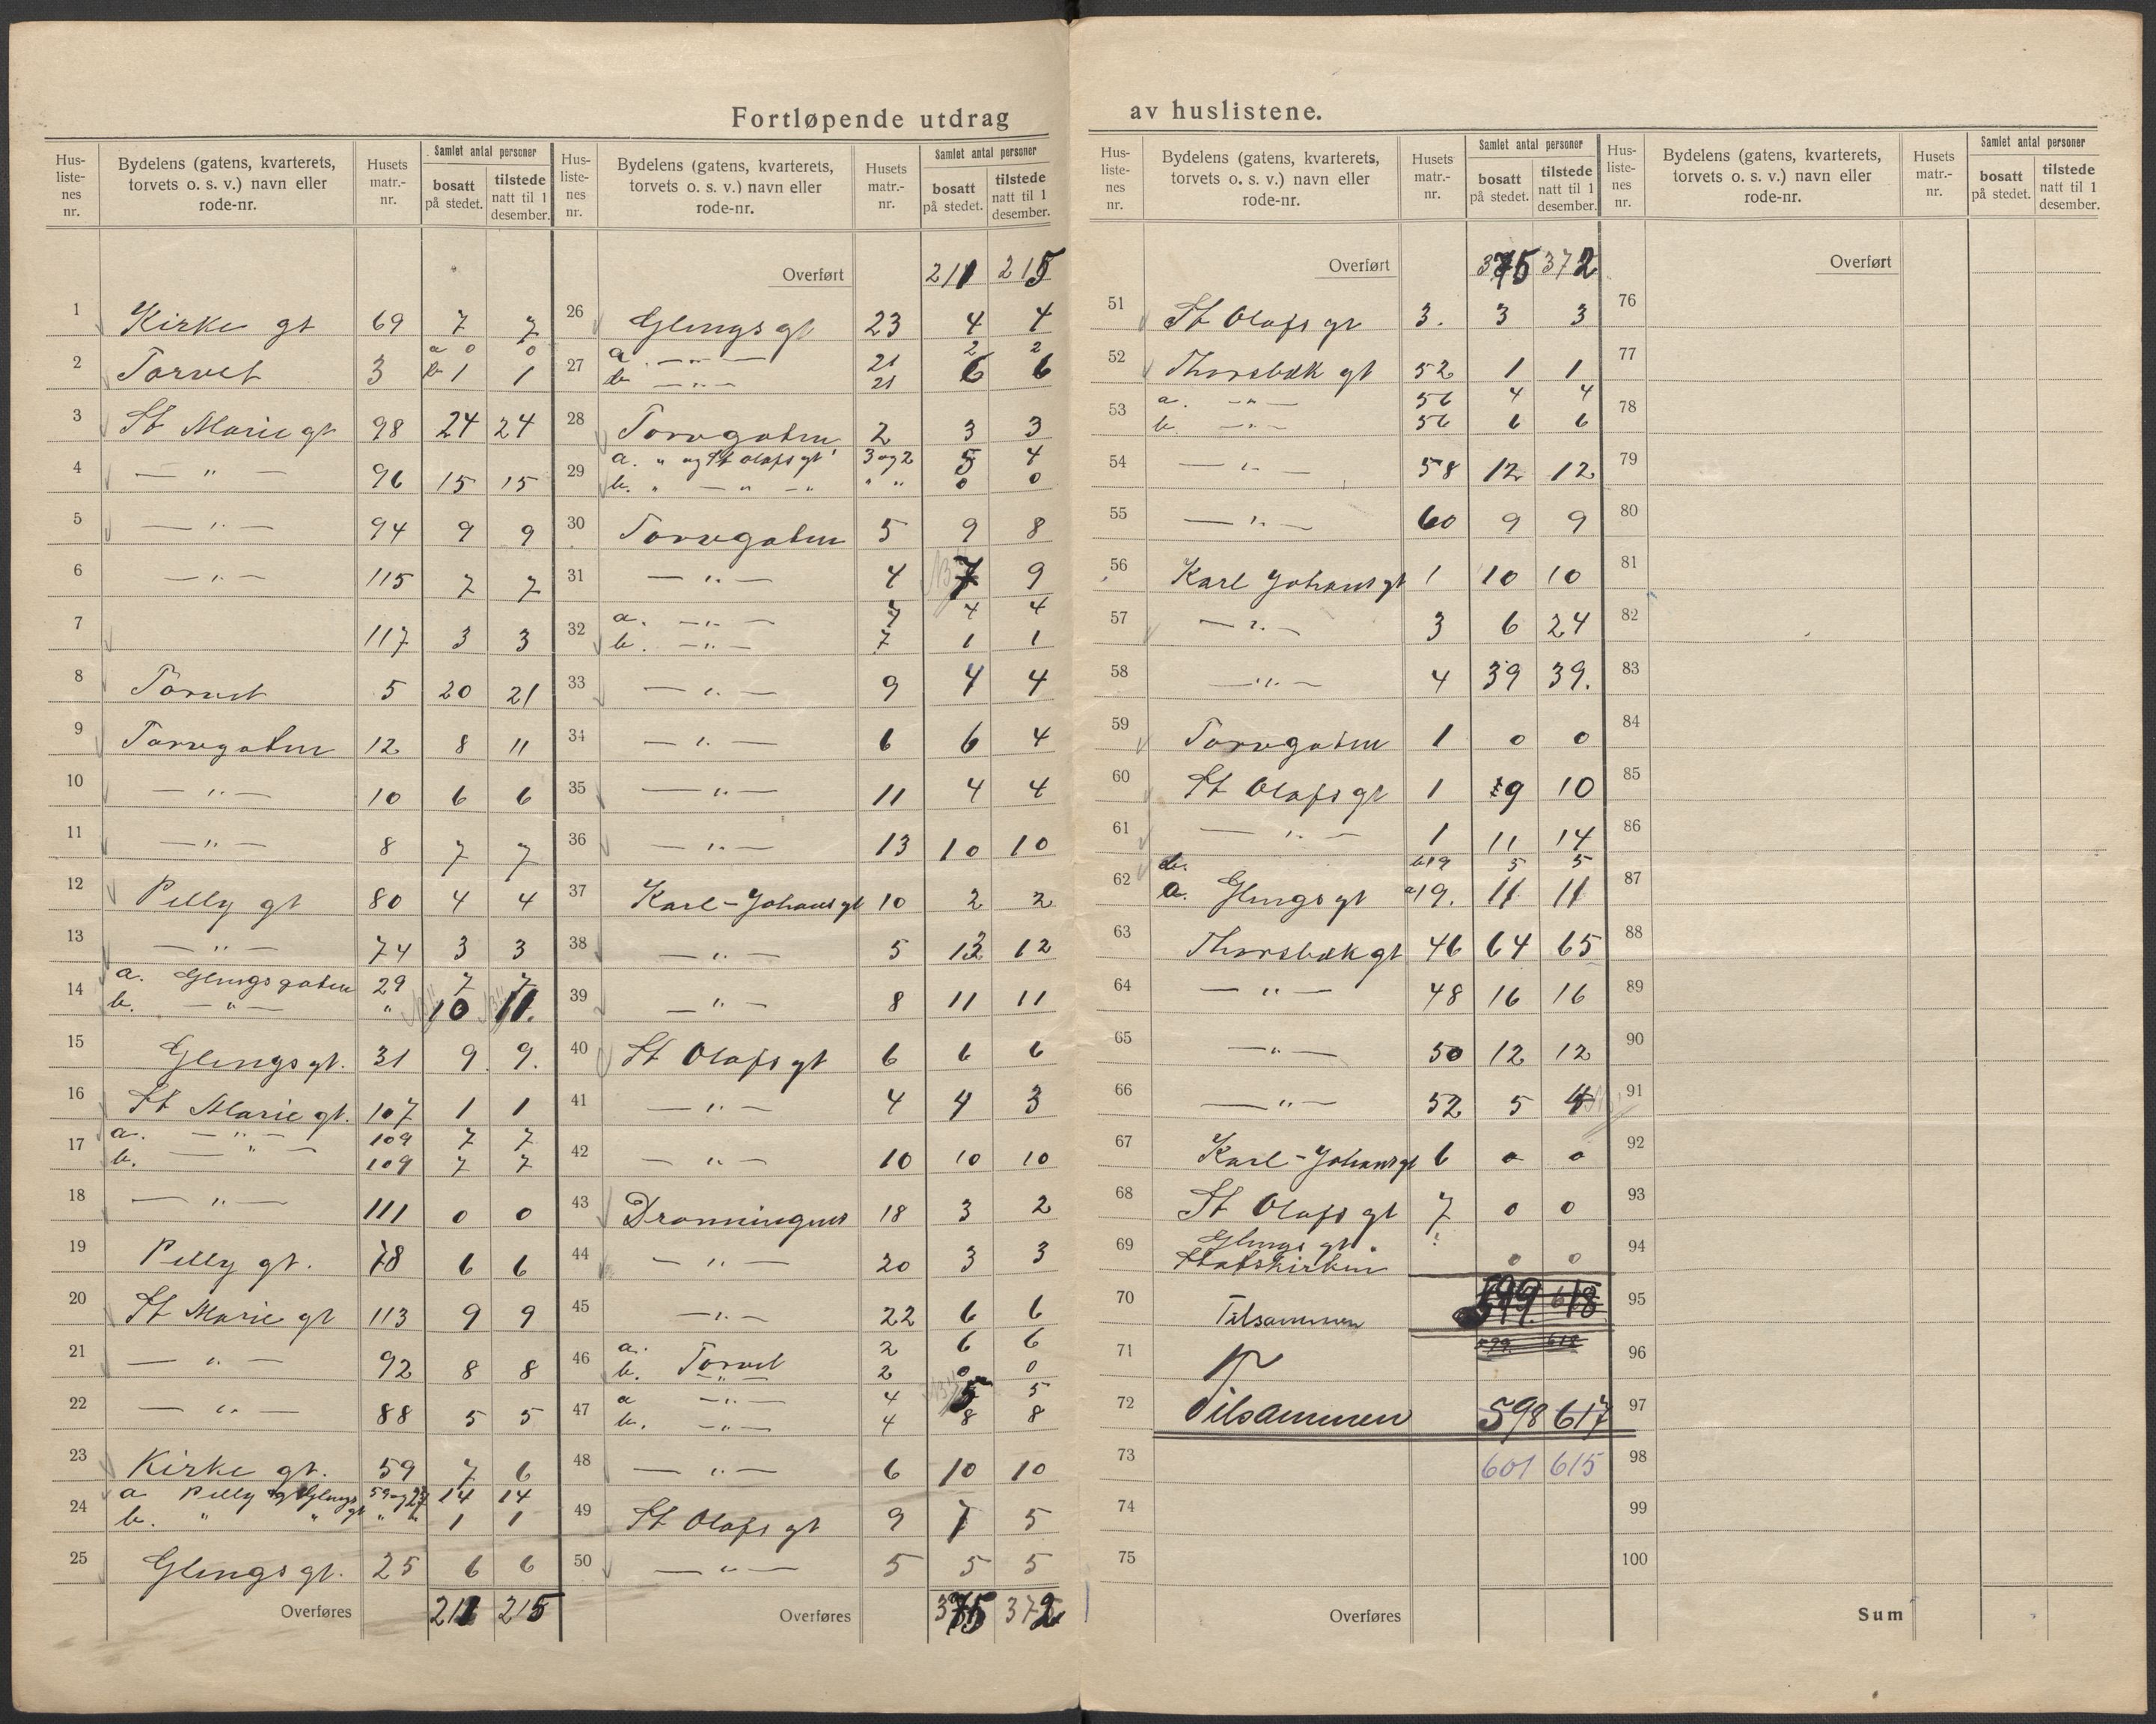 Fortløpende utdrag av huslistene.
Hus-liste-nes nr. | Bydelens (gatens, kvarterets, torvets o. s. v.) navn eller rode-nr. | Husets matr.-nr. | Samlet antal personer bosatt på stedet. | tilstede natt til 1 desember.
1 Kirke gt 69 7 7
a 0 0
2 Torvet 3 b 1 1
3 St Marie gt 98 24 24
4 — " — 96 15 15
5 — " — 94 9 9
6 — " — 115 7 7
7 117 3 3
8 Torvet 5 20 21
9 Torvegaten 12 8 11
10 — " — 10 6 6
11 — " — 8 7 7
12 Pelly gt 80 4 4
13 — " — 74 3 3
14 a. Glengsgaten 29 7 7
b. — " — " 10 11.
15 Glengsgt. 31 9 9.
16 St Marie gt. 107 1 1
17 a. — " — 109 7 7
b. — " — 109 7 7
18 — " — 111 0 0
19 Pelly gt. 78 6 6
20 St Marie gt 113 9 9
21 — " — 92 8 8
22 — " — 88 5 5
23 Kirke gt. 59 7 6
24 a Pelly og Glengs gt 59 og 27 14 14
b. " " " " 1 1
25 Glengs gt. 25 6 6
Overføres 211 215
Hus-liste-nes nr. | Bydelens (gatens, kvarterets, torvets o. s. v.) navn eller rode-nr. | Husets matr.-nr. | Samlet antal personer bosatt på stedet. | tilstede natt til 1 desember.
Overført 211 215
26 Glengs gt 23 4 4
27 a. — " — 21 2 2
b — " — 21 6 6
28 Torvegaten 2 3 3
29 a. " og St Olafs gt 3 og 2 5 4
b. " — " — " " " 0 0
30 Torvegaten 5 9 8
31 — " — 4 7 9
32 a. — " — 7 4 4
b. — " — 7 1 1
33 — " — 9 4 4
34 — " — 6 6 4
35 — " — 11 4 4
36 — " — 13 10 10
37 Karl-Johans gt 10 2 2
38 — " — 5 12 12
39 — " — 8 11 11
40 St Olafs gt 6 6 6
41 — " — 4 4 3
42 — " — 10 10 10
43 Dronningens 18 3 2
44 — " — 20 3 3
45 — " — 22 6 6
46 a. 2 6 6
b. Torvet 2 0 0
47 a — " — 4 5 5
b. — " — 4 8 8
48 — " — 6 10 10
49 St Olafs gt 9 7 5
50 — " — 5 5 5
Overføres 375 372
Hus-liste-nes nr. | Bydelens (gatens, kvarterets, torvets o. s. v.) navn eller rode-nr. | Husets matr.-nr. | Samlet antal personer bosatt på stedet. | tilstede natt til 1 desember.
Overført 375 372
51 St Olafs gt 3. 3 3
52 Thorsbæk gt 52 1 1
53 a. — " — 56 4 4
b. — " — 56 6 6
54 — " — 58 12 12
55 — " — 60 9 9
56 Karl Johans gt 1 10 10
57 — " — 3 6 24
58 — " — 4 39 39.
59 Torvegaten 1 0 0
60 St Olafs gt 1 9 10
61 — " — 1 11 14
62 b. b19 5 5
a. Glengs gt a19. 11 11
63 Thorsbæk gt 46 64 65
64 — " — 48 16 16
65 — " — 50 12 12
66 — " — 52 5 4
67 Karl-Johans gt 6 0 0
68 St Olafs gt 7 0 0
69 Glengs gt.
Statskirken 0 0
70 Tilsammen 599 618
71 599 618
72 Tilsammen 598 617
73 601 615
74
75
Overføres
Hus-liste-nes nr. | Bydelens (gatens, kvarterets, torvets o. s. v.) navn eller rode-nr. | Husets matr.-nr. | Samlet antal personer bosatt på stedet. | tilstede natt til 1 desember.
Overført
76
77
78
79
80
81
82
83
84
85
86
87
88
89
90
91
92
93
94
95
96
97
98
99
100
Sum